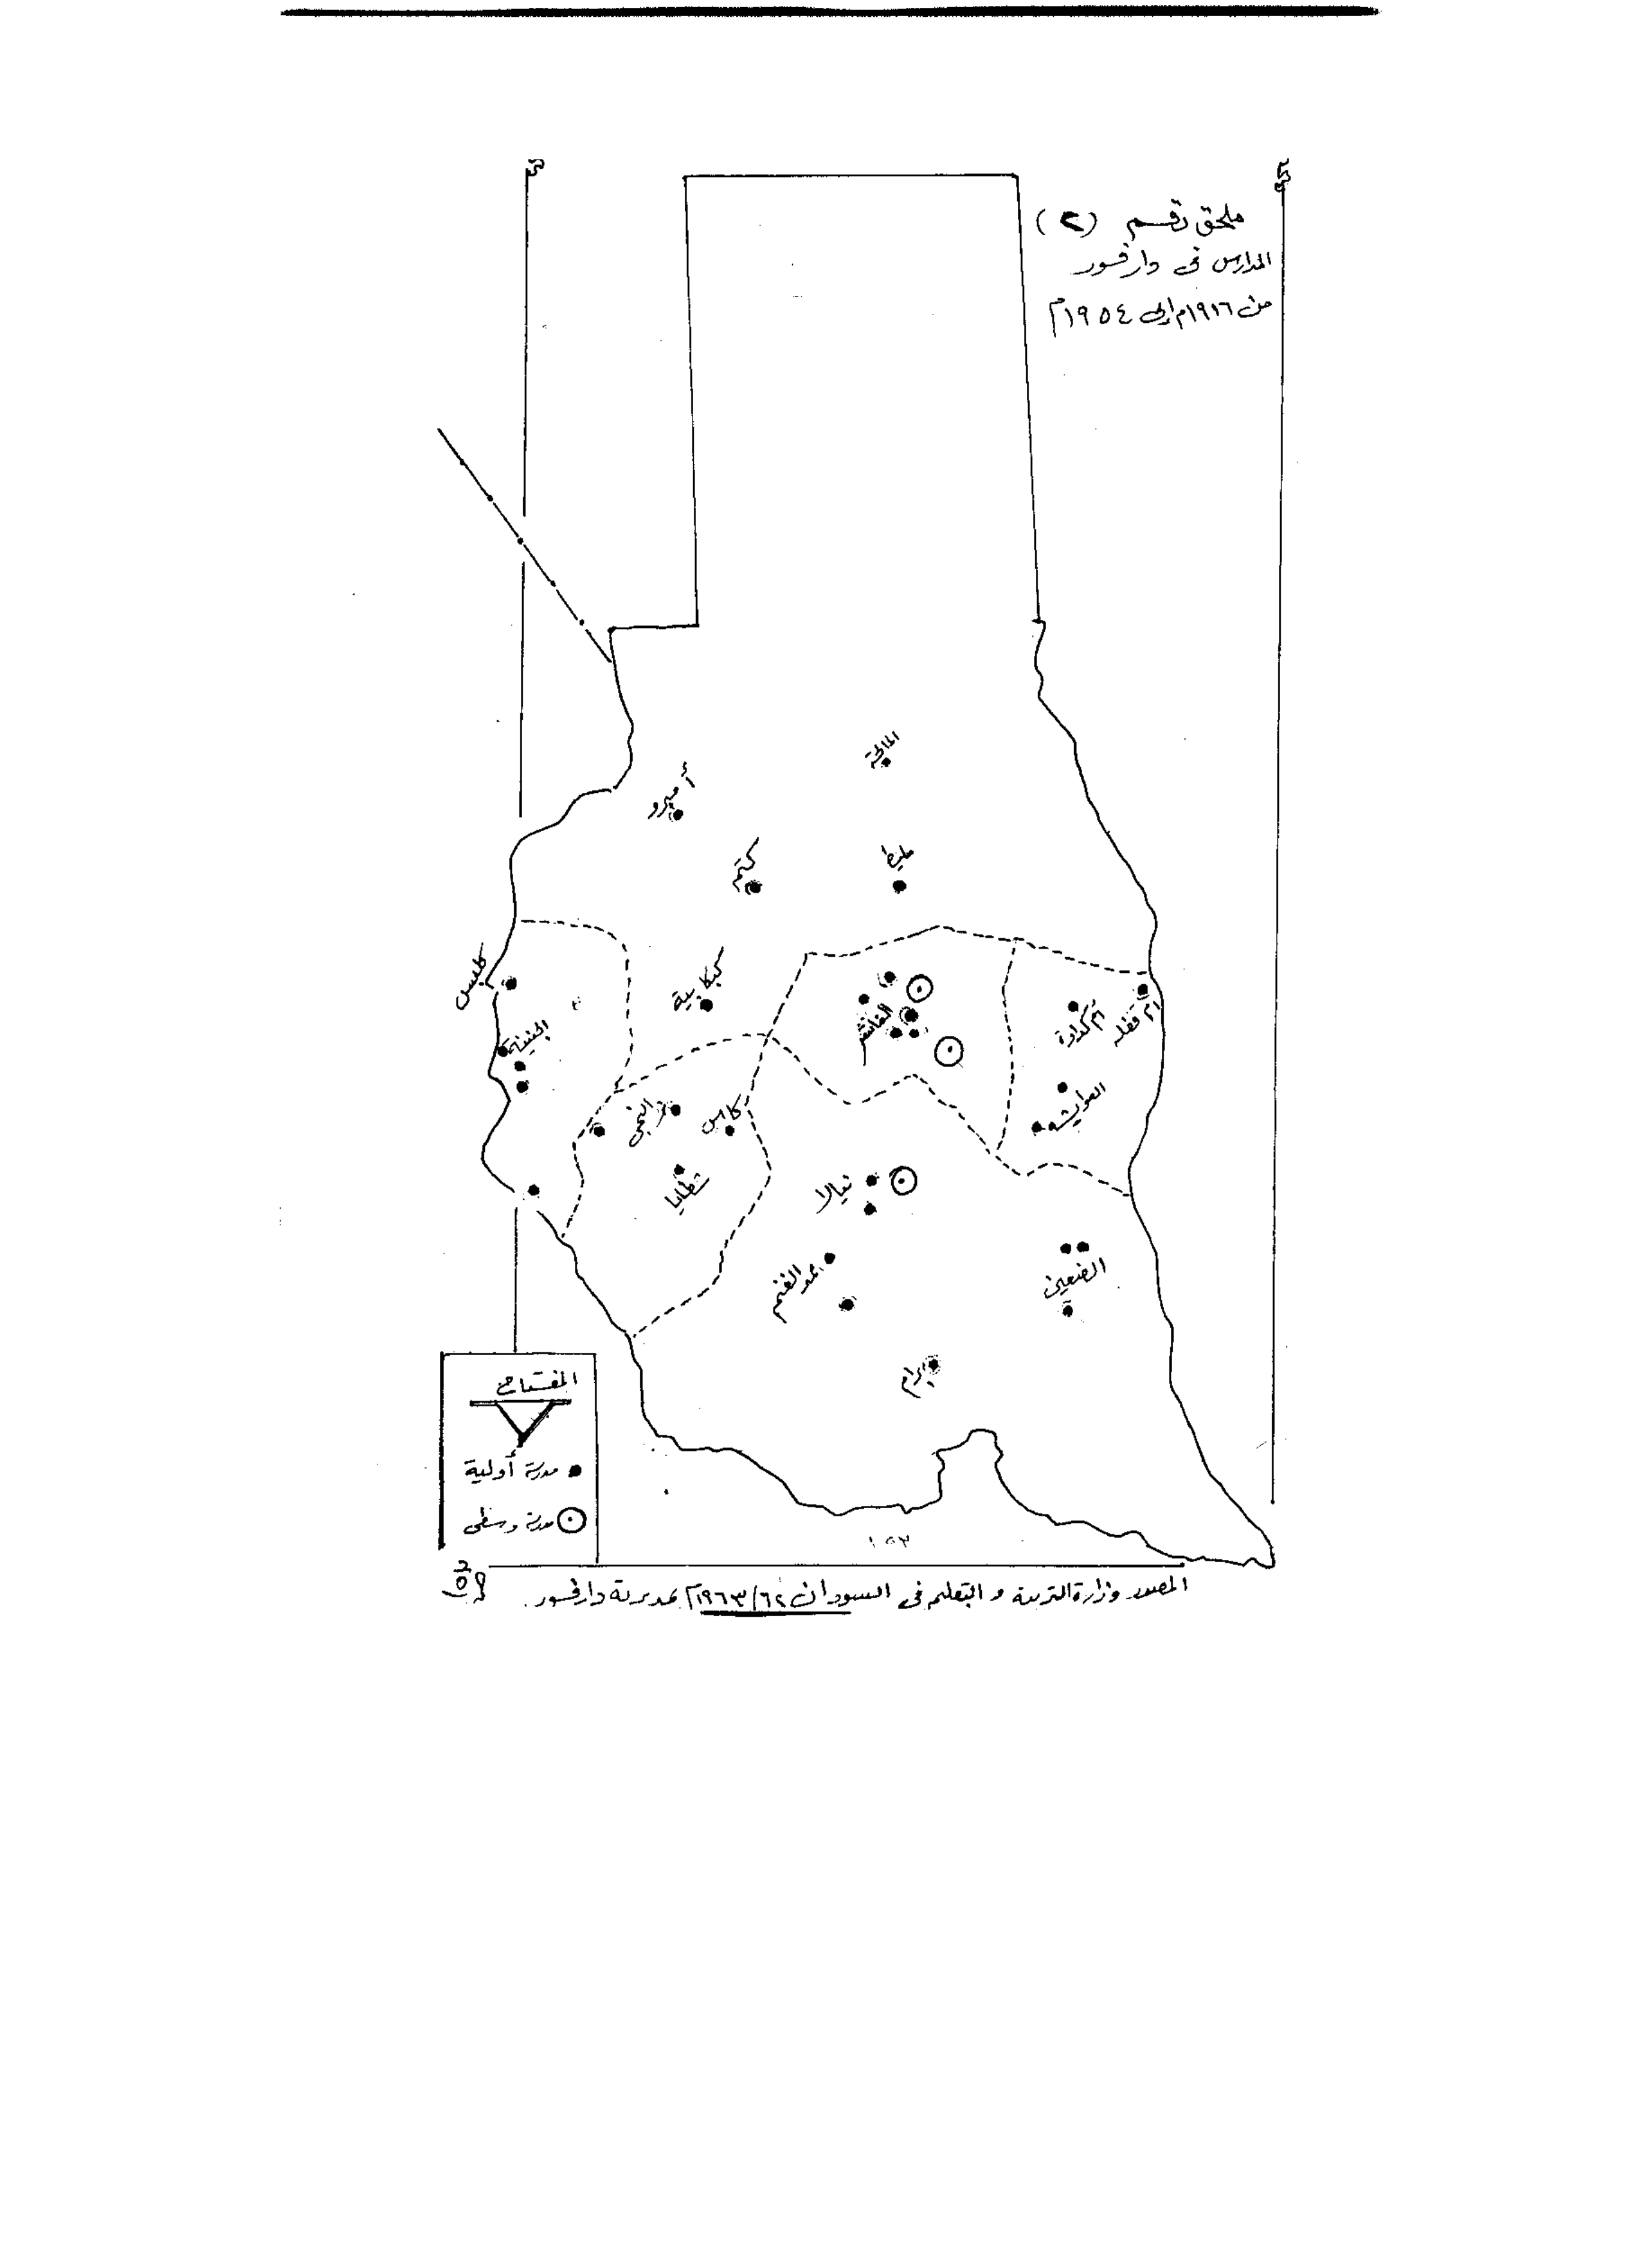 ملحق رقم (٢)
المدارس فى دارفور
من ١٩١٦م إلى ١٩٥٤م
المالحة
أمبرو
كتم
مليط
كلبس
كبكابية
الجنينة
الفاشر
أم كدادة
أم قفله
الطويشه
زالنجى
كاس
شطايا
نيالا
عد الغنم
الضعين
برام
المفتاح
مدرسة أولية
مدرسة وسطى
١٥٣
المصدر وزارة التربية و التعليم فى السودان ٦٢/١٩٦٣م بمديرية دارفور.